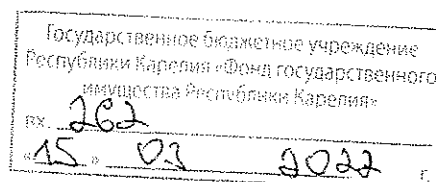 Государственное бюджетное учреждение
Республики Карелия «Фонд государственного
имущества Республики Карелия»
вх. 262
«15» 03 2022 г.